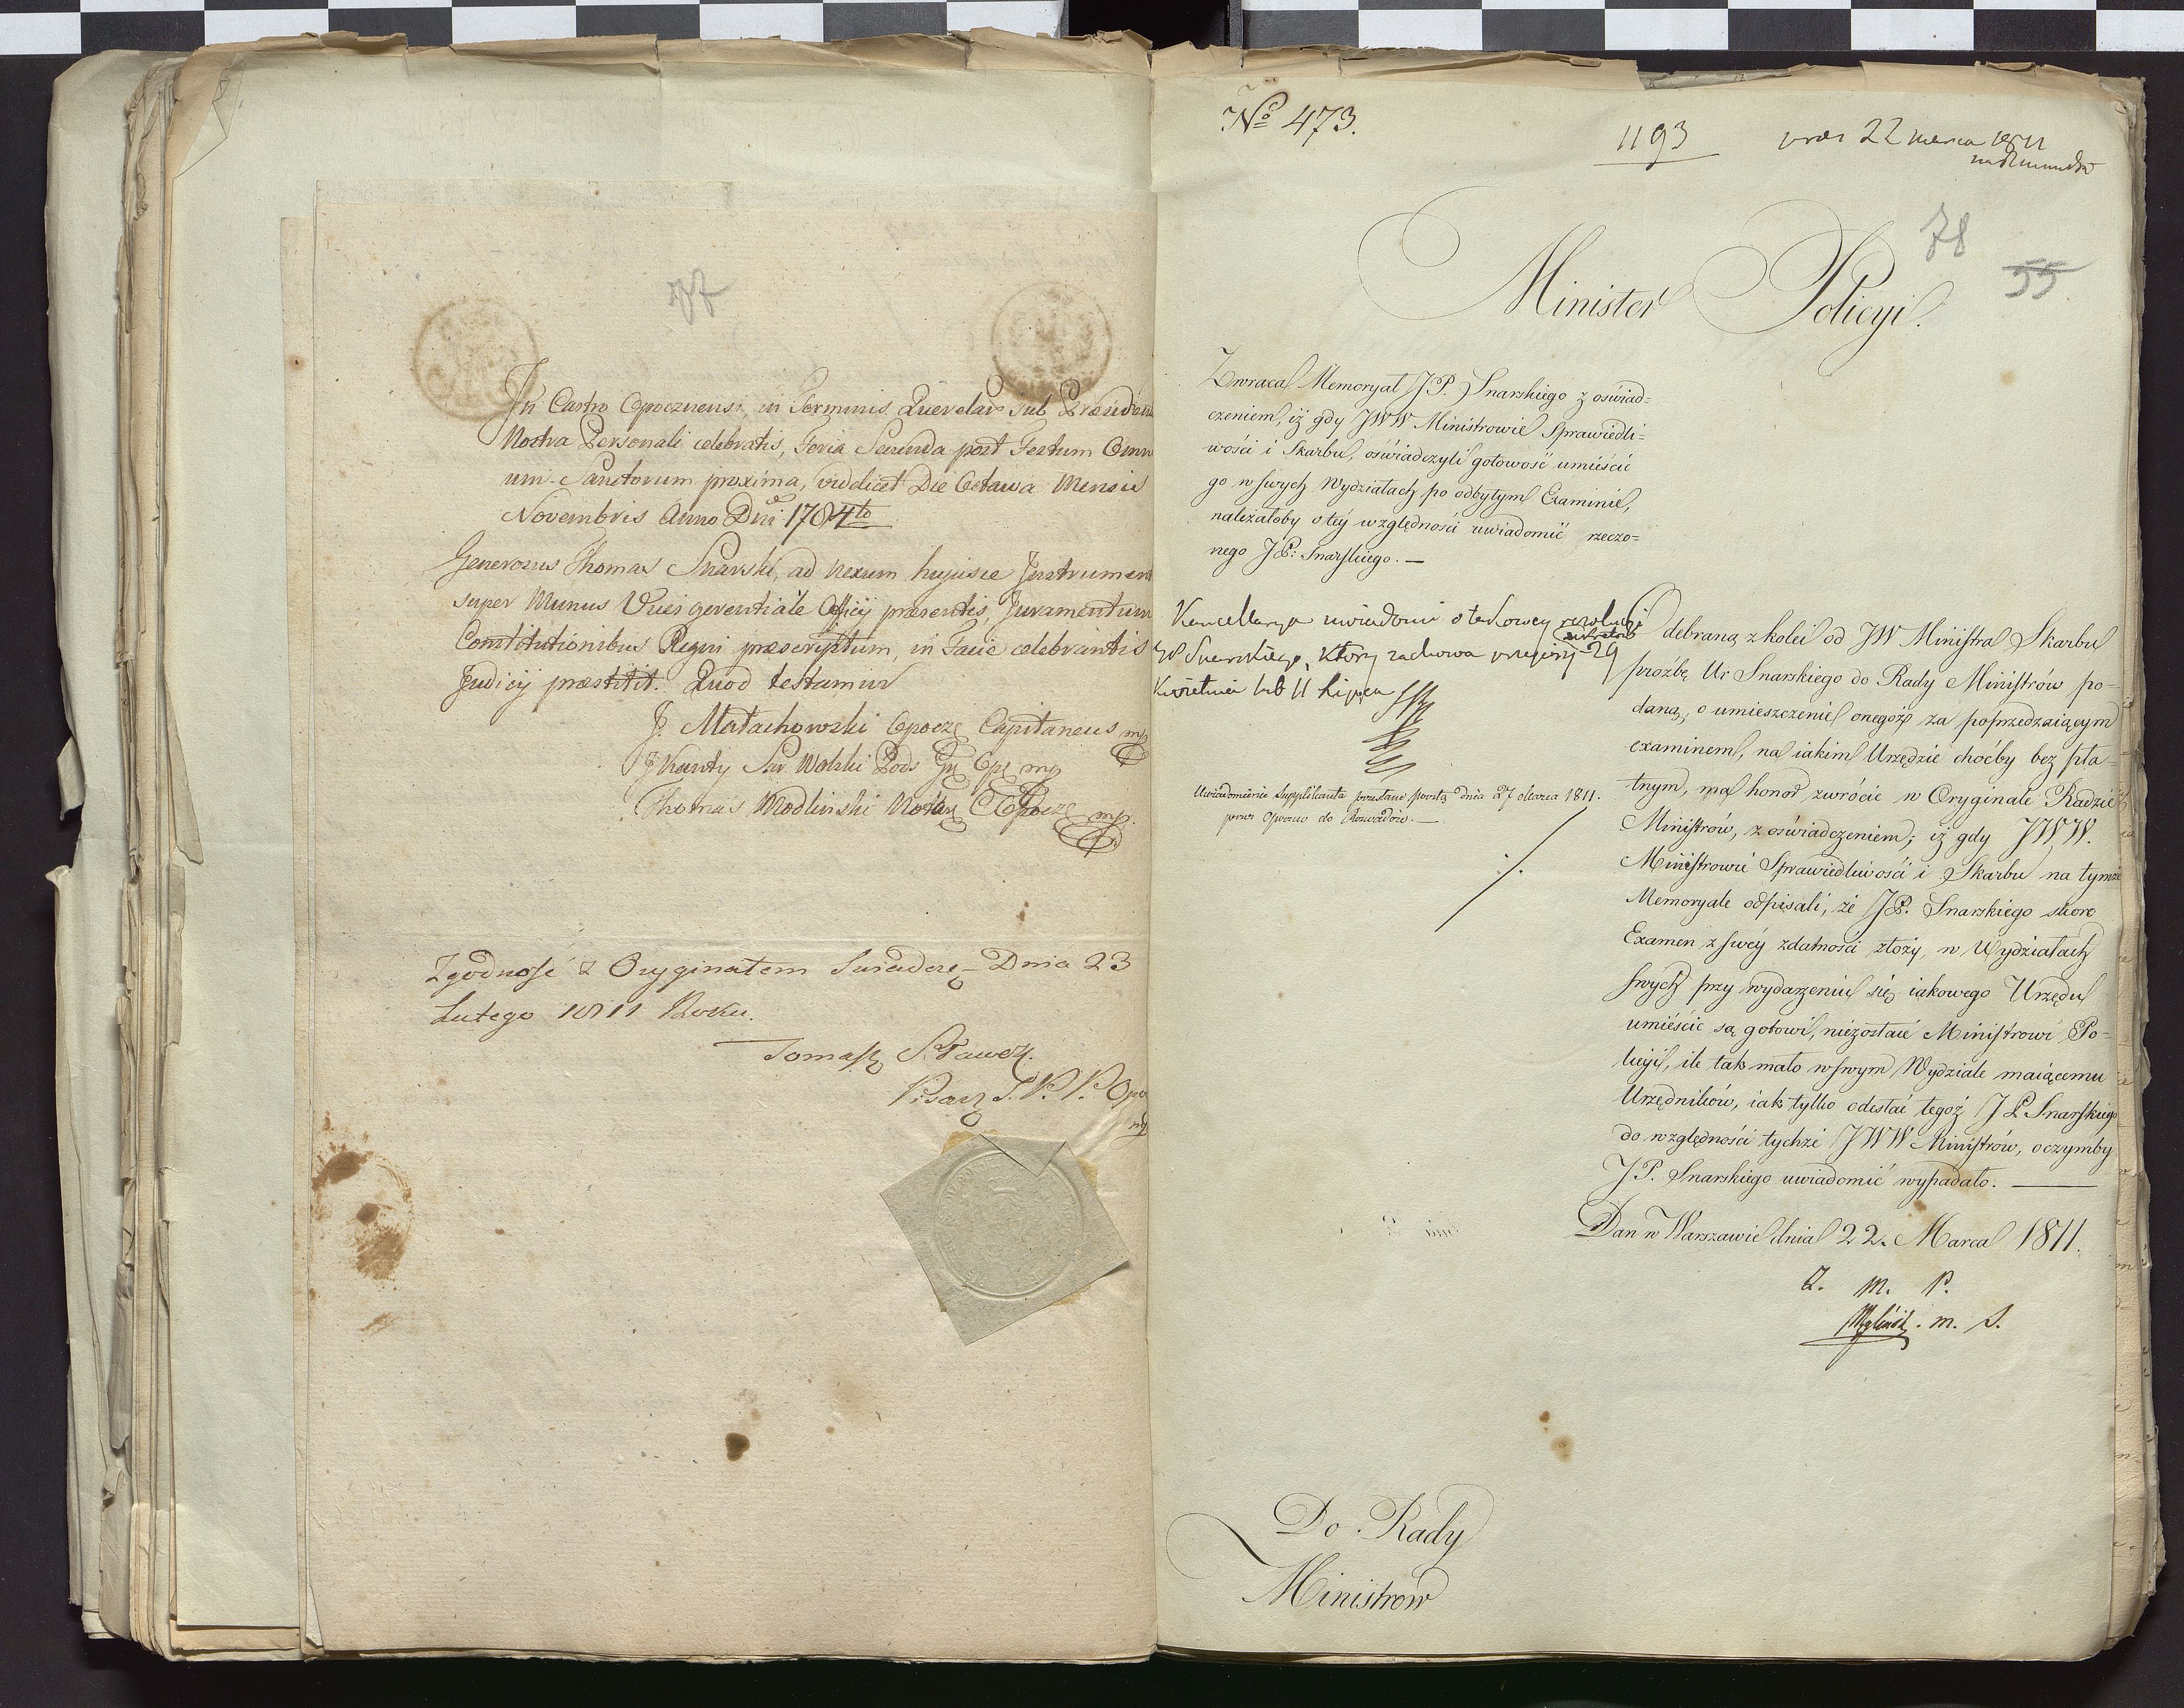 77
In Castro Opocznensi, in Terminis Querelar Sub Præsiden
Nostra Personali celebratis, Feria Secunda post Festum Omn
um Sanctorum proxima, videlicet Die Octava Mensis
Novembris Anno Dni 1784to
Generosus Thomas Snarski, ad nexum hujusce Instrument
super Munus Vices gerentiale Officij præsentis, Juramentum
Constitutionibus Regni præscriptum, in Facie celebrantis
Judicij præstitit. Quod testamur
J. Małachowski Opocz Capitaneus mp
J Kanty Wolski Pods Gr Opo mp
Thomas Modlinski Notar C Opocz mp.
Zgodność z Oryginałem Swiadczę – Dnia 23
Lutego 1811 Roku.
Tomasz
Pisarz S. P. P. Opo
mp
No 473.
1193
22 marca 1811
78
55
Minister Policyi.
Zwraca Memoryał J.P. Snarskiego z oświad=
czeniem, iż gdy JWW Ministrowie Sprawiedli=
wości i Skarbu, oświadczyli gotowość umieścić
go w swych Wydziałach po odbytym Examinie,
należałoby o tey względności uwiadomić rzeczo=
nego J P: Snarskiego. —
Kancellarya uwiadomi o takowey rezolucyi
W Snarskiego, który zachowa przepisy 29
Kwietnia lub 11 Lipca
Uwiadomienie Supplikanta przesłano pocztą dnia 27 Marca 1811.
przez Opoczno do
Odebraną z kolei od JW Ministra Skarbu
prożbę Ur Snarskiego do Rady Ministrów po=
daną, o umieszczenie onegoż za poprzedzaiącym
examinem, na iakim Urzędzie choćby bez pła=
tnym, ma honor zwrócić w Oryginale Radzie
Ministrów, z oświadczeniem; iż gdy JWW.
Ministrowie Sprawiedliwości i Skarbu na tymże
Memoryale odpisali, że JP. Snarskiego skoro
Examen z swey zdatności złoży, w Wydziałach
swych przy wydarzeniu się iakowego Urzędu
umieścić są gotowi, niezostaie Ministrowi Po=
licyi, ile tak mało w swym Wydziale maiącemu
Urzędników, iak tylko odesłać tegoż J P Snarskiego
do względności tychże JWW Ministrów, o czymby
J P. Snarskiego uwiadomić wypadało. —
Dan w Warszawie dnia 22. Marca 1811.
Z. M. P.
m. S.
Do Rady
Ministrow